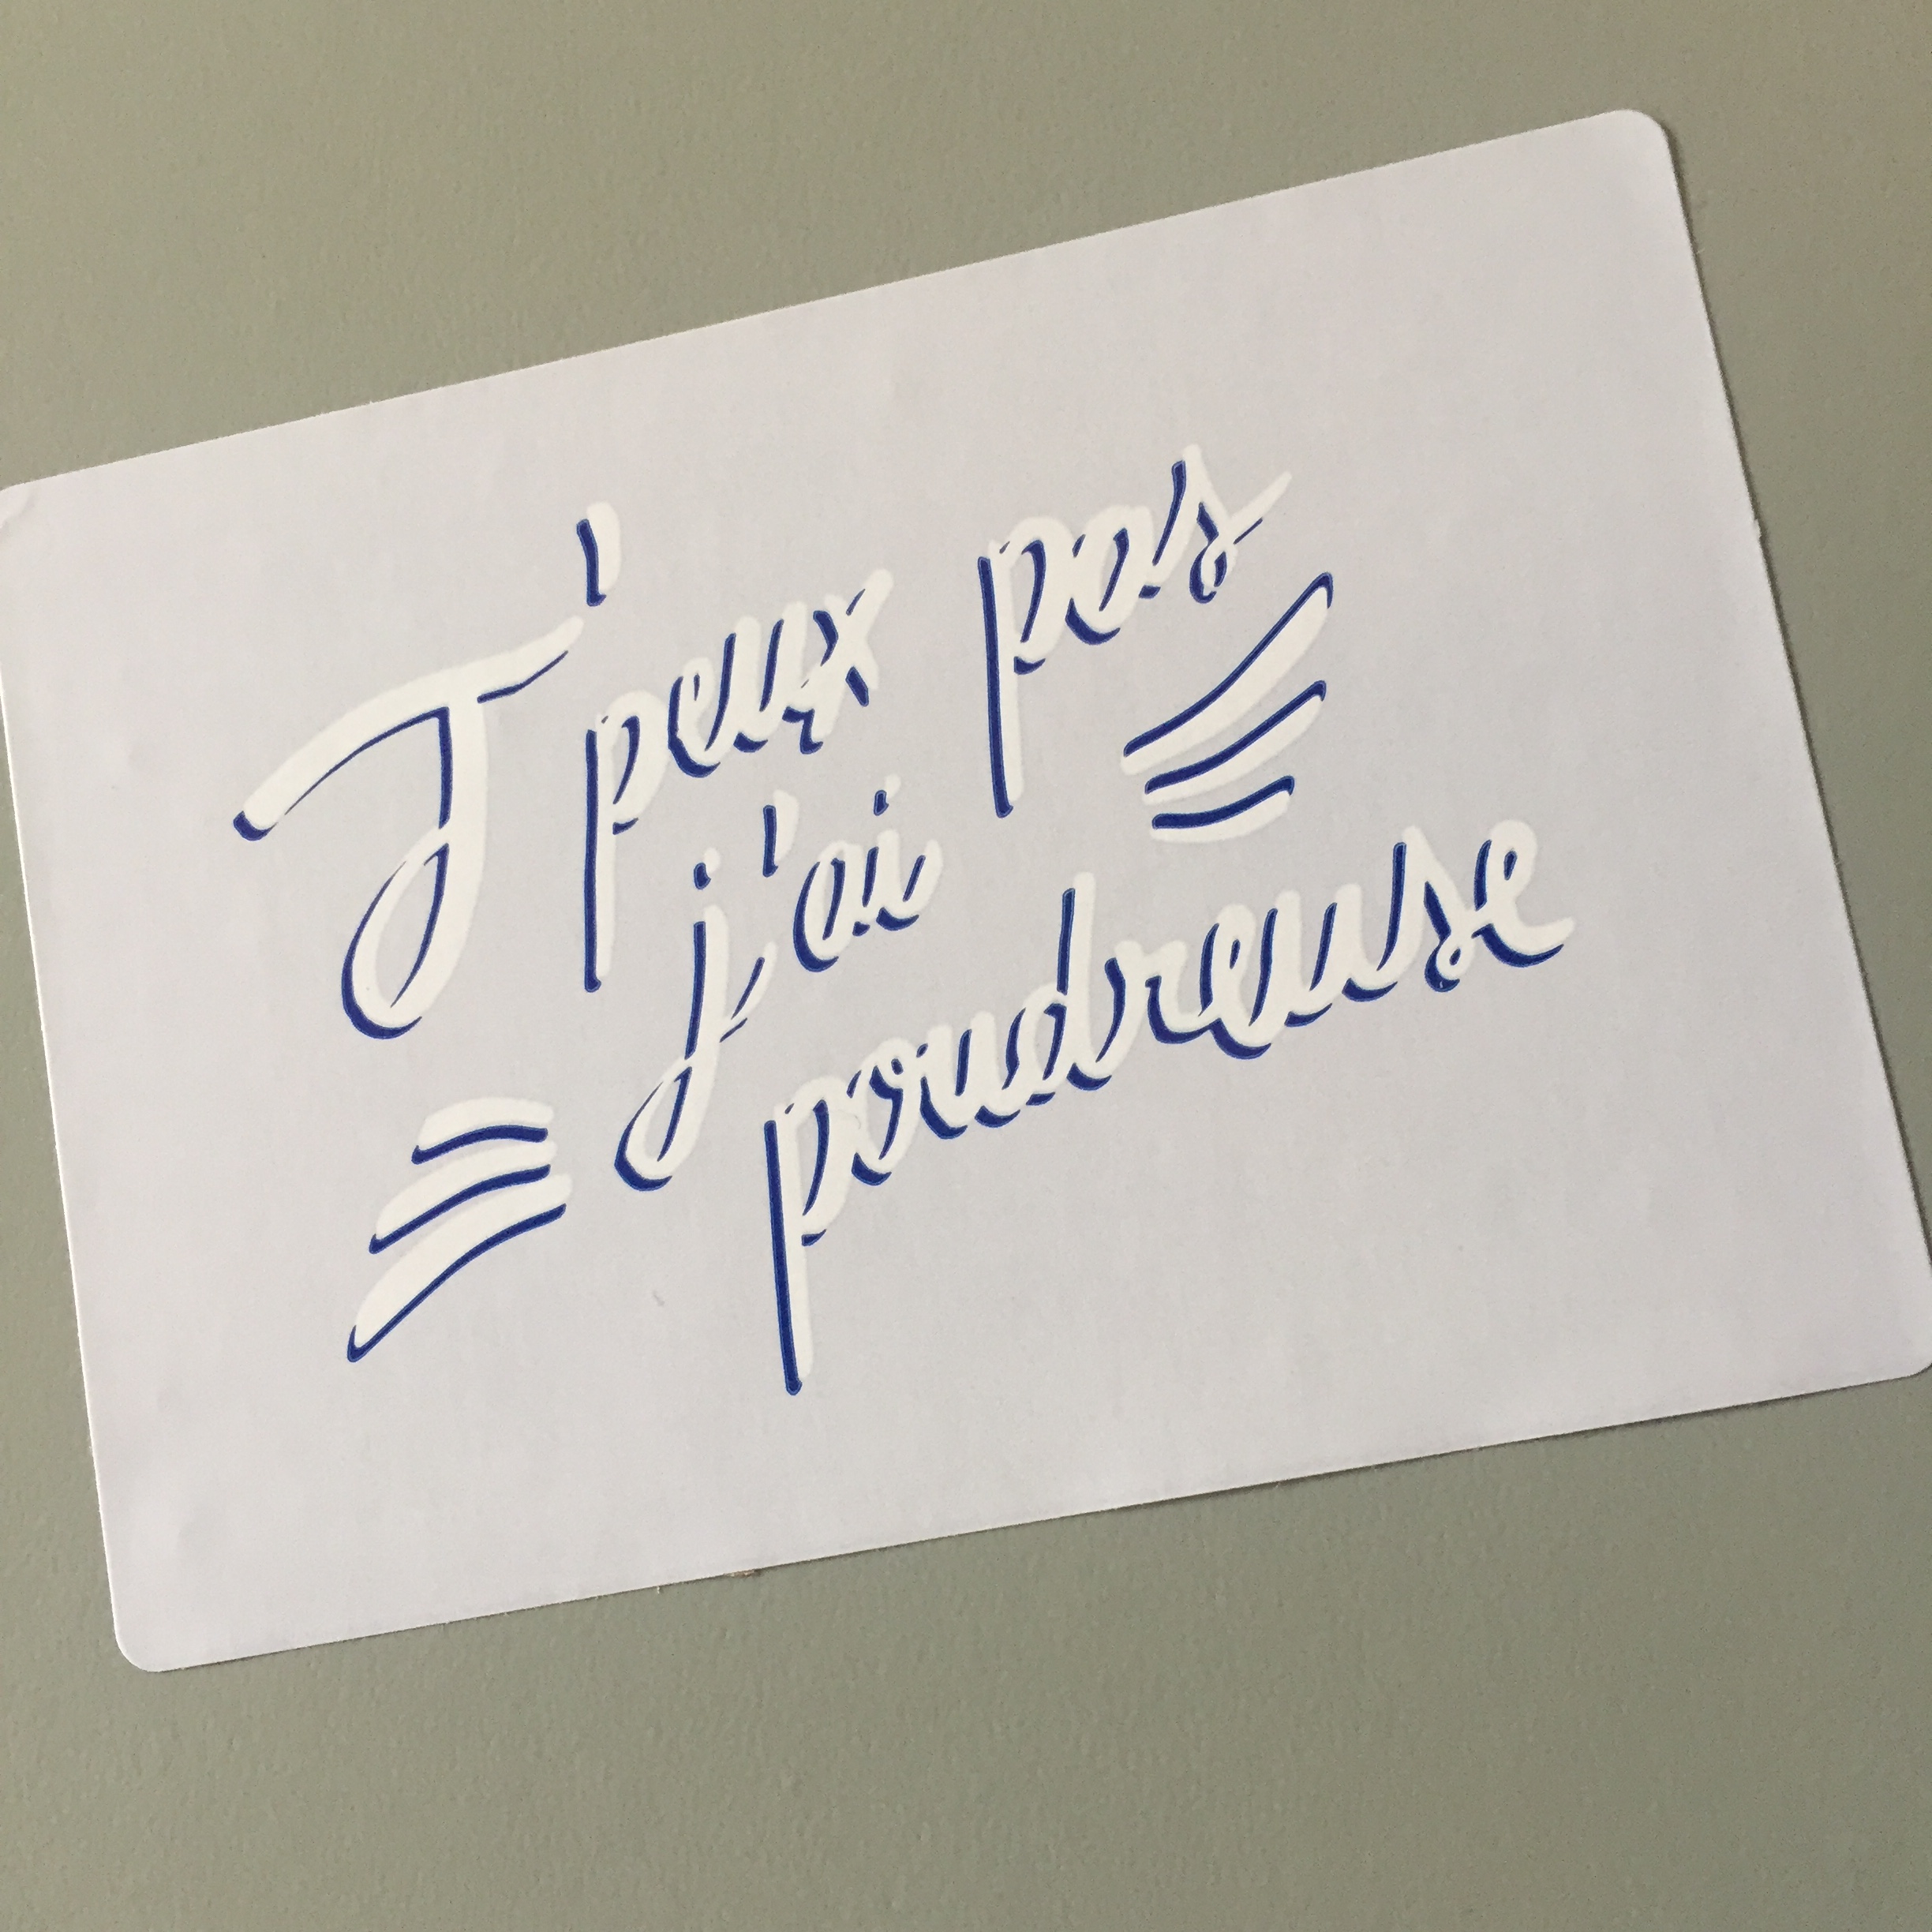 J'peux pas
j'ai
poudreuse